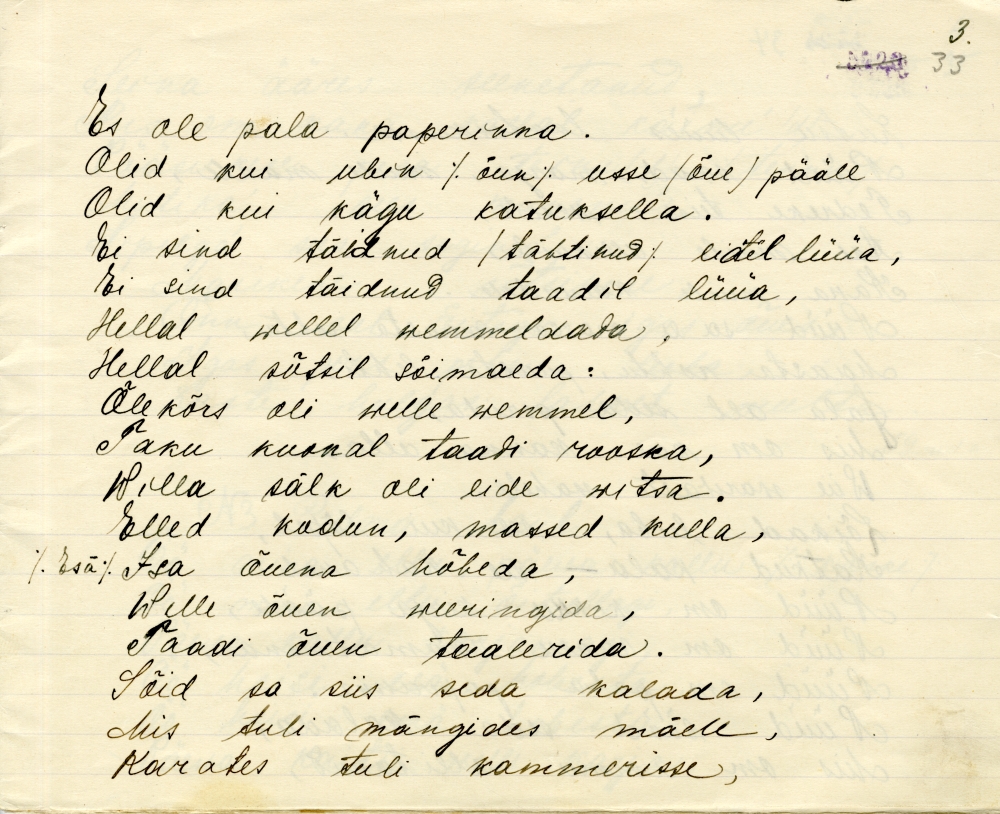 3.
33
Es ole pala paperinna.
Olid kui ubin ⁒ õun ⁒ usse (õue) pääle
Olid kui kägu katuksella.
Ei sind täidnud (tähtinud ⁒ eidel lüüa,
Ei sind täidnud taadil lüüa,
Hellal wellel wemmeldada,
Hellal sõtsil sõimaeda:
Õlekõrs oli welle wemmel,
Taku kuonal taadi rooska,
Willa sälk oli eide witsa.
Elled kodun, massed kulla,
⁒ Esä ⁒ Isa õuena hõbeda,
Welle õuen weeringida,
Taadi õuen taalerida.
Sõid sa siis seda kalada,
Mis tuli mängides mäele,
Karates tuli kammerisse,